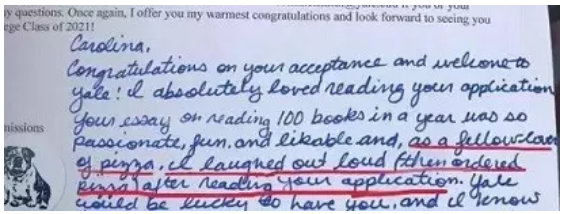 y questions. Once again, I offer you my warmest congratulations and look forward to seeing you
ege Class of 2021!
Carolina,
Congratulations on your acceptance and welcome to
Yale! I absolutely loved reading your application
Your essay on reading 100 books in a year was so
nissions
passionate, fun, and likable and, as a fellow lover
of pizza, I laughed out loud (then ordered
pizza) after reading your application. Yale
would be lucky to have you, and I know